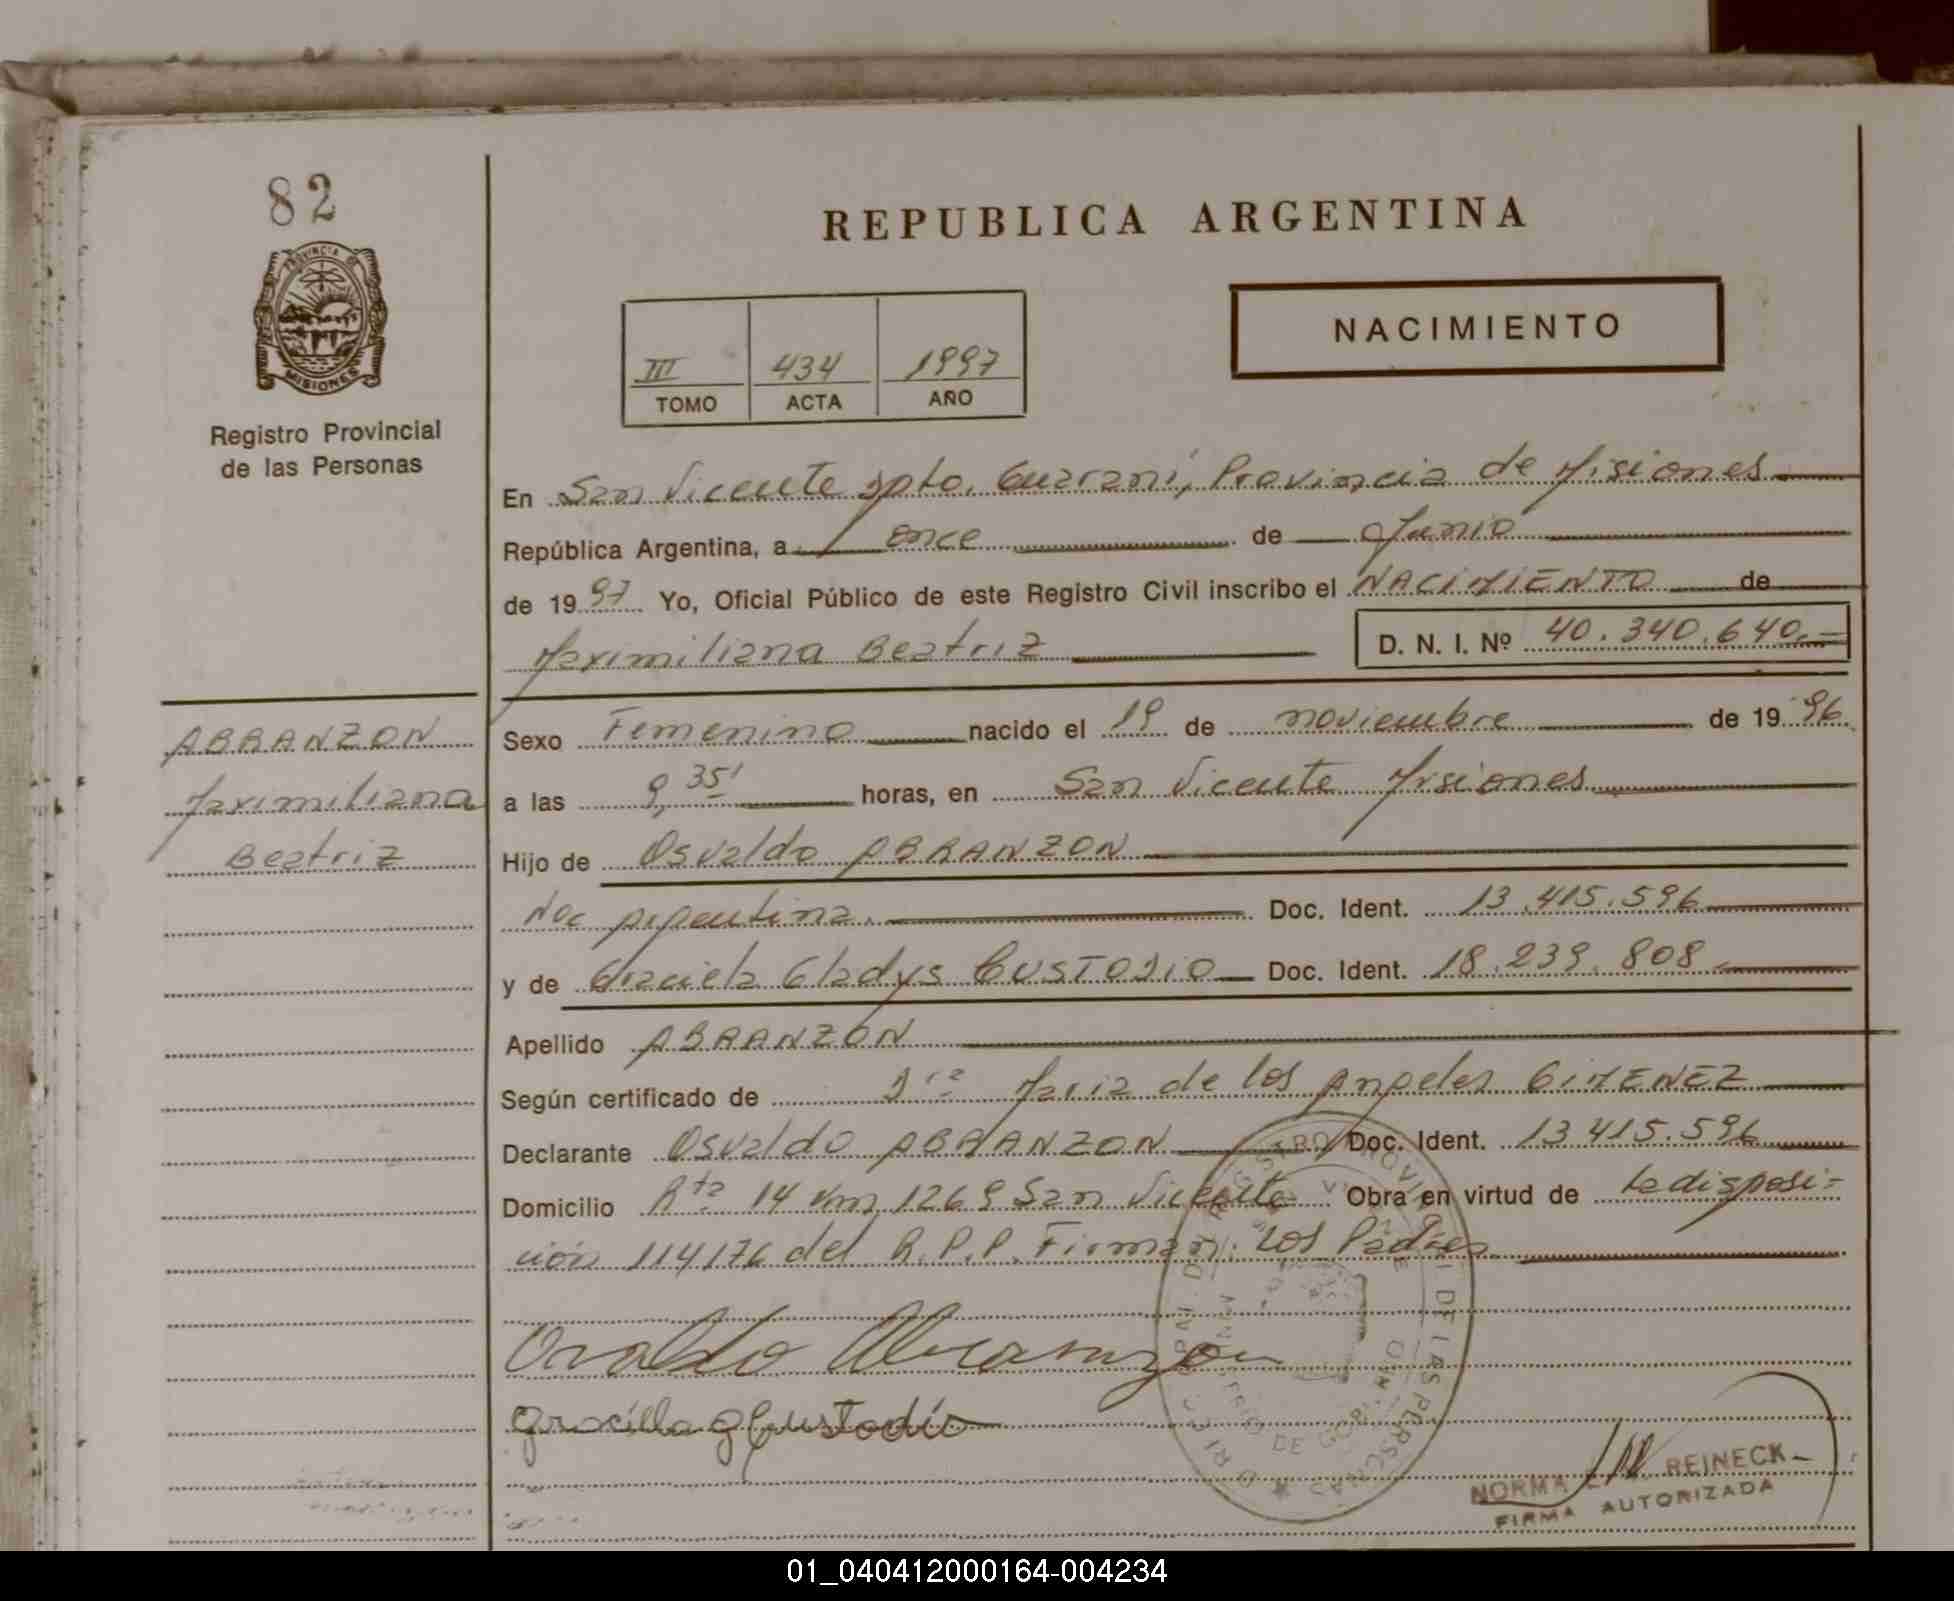 82
PROVINCIA DE
MISIONES
Registro Provincial
de las Personas
REPUBLICA ARGENTINA
NACIMIENTO
III 434 1997
TOMO ACTA AÑO
En San Vicente Dpto. Guaraní, Provincia de Misiones
República Argentina, a once de Junio
de 1997 Yo, Oficial Público de este Registro Civil inscribo el NACIMIENTO de
Maximiliana Beatriz D. N. I. Nº 40.340.640.=
ABRANZON
Maximiliana
Beatriz
Sexo Femenino nacido el 19 de noviembre de 1996
a las 9,35' horas, en San Vicente Misiones
Hijo de Osvaldo ABRANZON
Nac Argentina. Doc. Ident. 13.415.596
y de Graciela Gladys CUSTODIO Doc. Ident. 18.239.808
Apellido ABRANZON
Según certificado de Dra Maria de los Angeles GIMENEZ
Declarante Osvaldo ABRANZON Doc. Ident. 13.415.596
Domicilio Rta 14 Km 1269 San Vicente Obra en virtud de la disposi=
ción 114/76 del R.P.P. Firman: Los Padres
Osvaldo Abramzon
Graciela G Custodio
NORMA REINECK
FIRMA AUTORIZADA
01_040412000164-004234